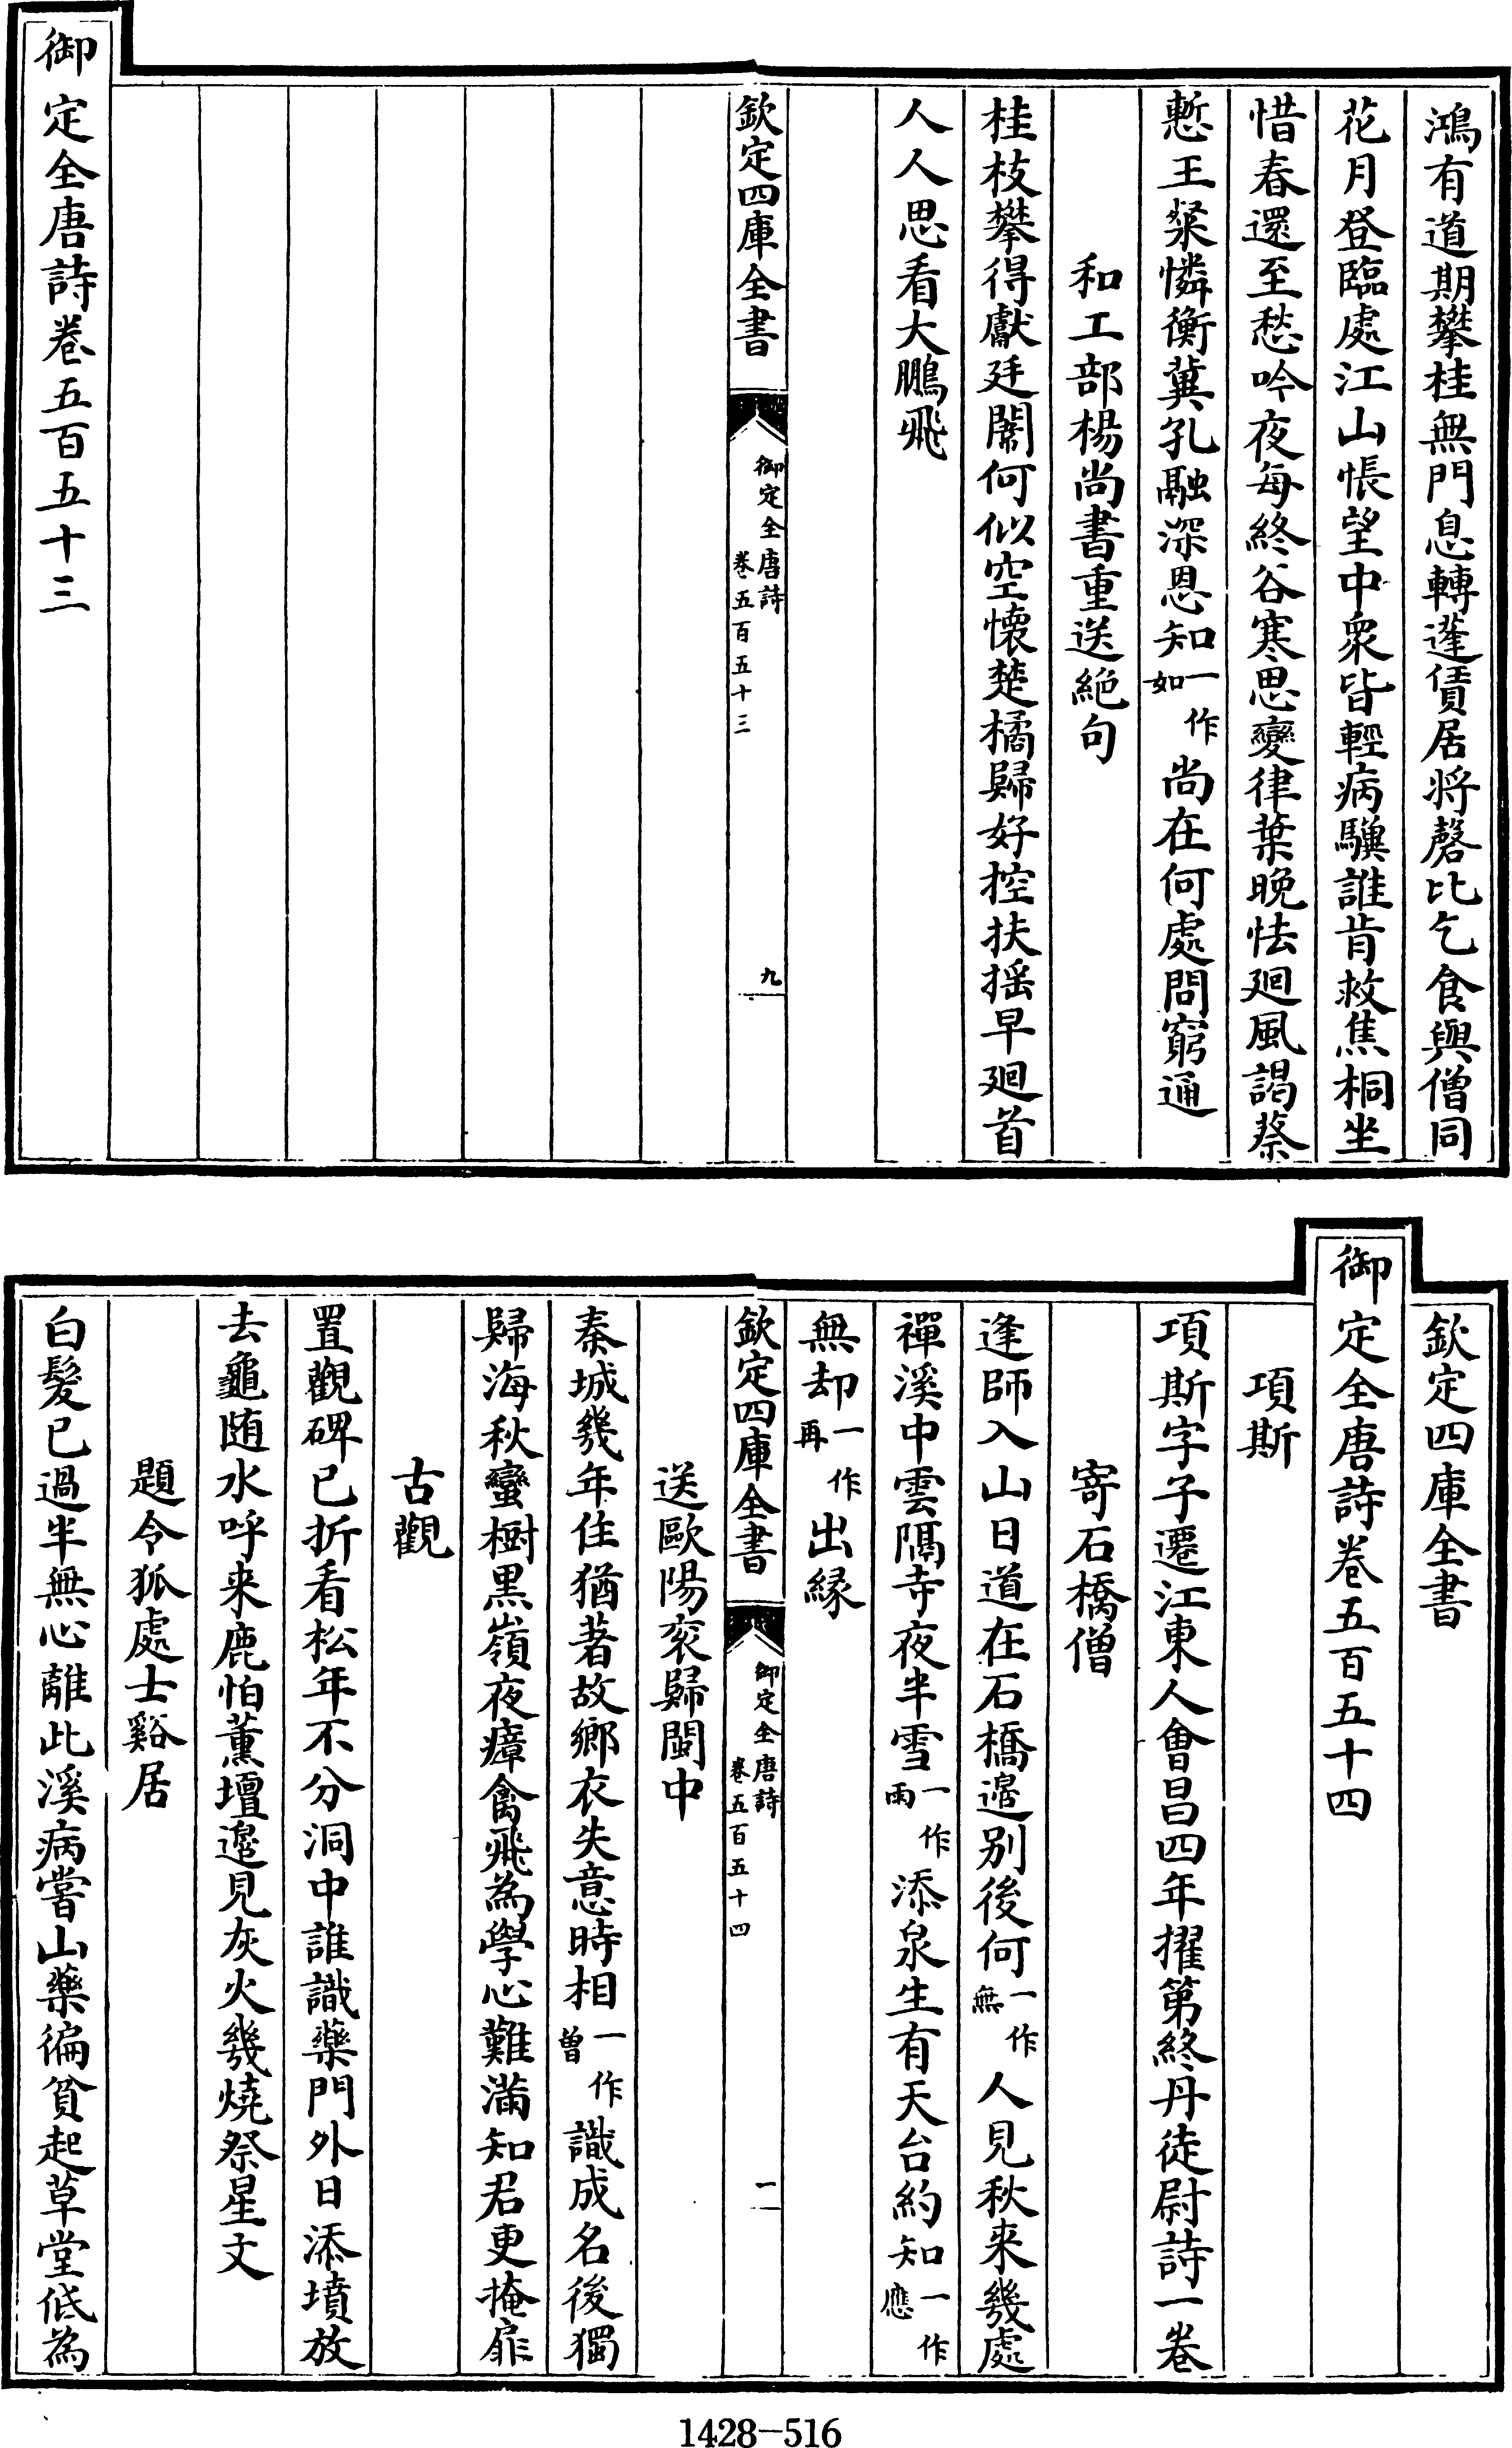 鴻有道期攀桂無門息轉蓬賃居將罄比乞食與僧同
花月登臨處江山悵望中衆皆輕病驥誰肯救焦桐坐
惜春還至愁吟夜每終谷寒思變律葉晚怯廻風謁蔡
慙王粲憐衡冀孔融深恩知一作如尚在何處問窮通
和工部楊尚書重送絶句
桂枝攀得獻廷闈何似空懷楚橘歸好控扶摇早廻首
人人思看大鵬飛
欽定四庫全書
御定全唐詩
卷五百五十三
九
御定全唐詩卷五百五十三
欽定四庫全書
御定全唐詩卷五百五十四
項斯
項斯字子遷江東人會昌四年擢第終丹徒尉詩一卷
寄石橋僧
逢師入山日道在石橋邉别後何一作無人見秋来幾處
禪溪中雲隔寺夜半雪一作雨添泉生有天台約知一作應
無却一作再出縁
欽定四庫全書
御定全唐詩
卷五百五十四
一
送歐陽衮歸閩中
秦城幾年住猶著故鄉衣失意時相一作曽識成名後獨
歸海秋蠻樹黒嶺夜瘴禽飛為學心難滿知君更掩扉
古觀
置觀碑已折看松年不分洞中誰識藥門外日添墳放
去龜随水呼来鹿怕薰壇邉見灰火幾燒祭星文
題令狐處士谿居
白髪已過半無心離此溪病嘗山藥徧貧起草堂低為
1428-516